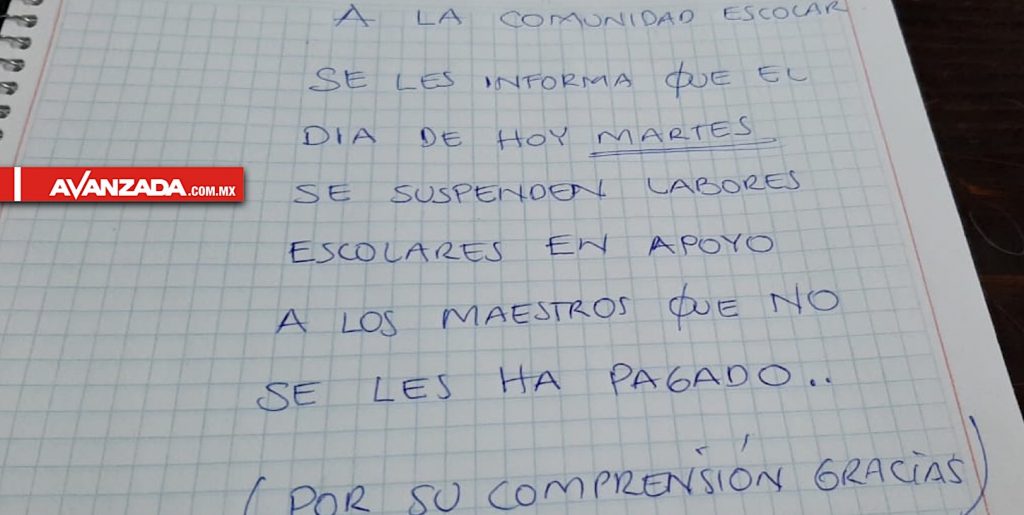 A LA COMUNIDAD ESCOLAR
SE LES INFORMA QUE EL
DIA DE HOY MARTES
AVANZADA.COM.MX
SE SUSPENDEN LABORES
ESCOLARES EN APOYO
A LOS MAESTROS QUE NO
SE LES HA PAGADO..
(POR SU COMPRENSIÓN GRACIAS)